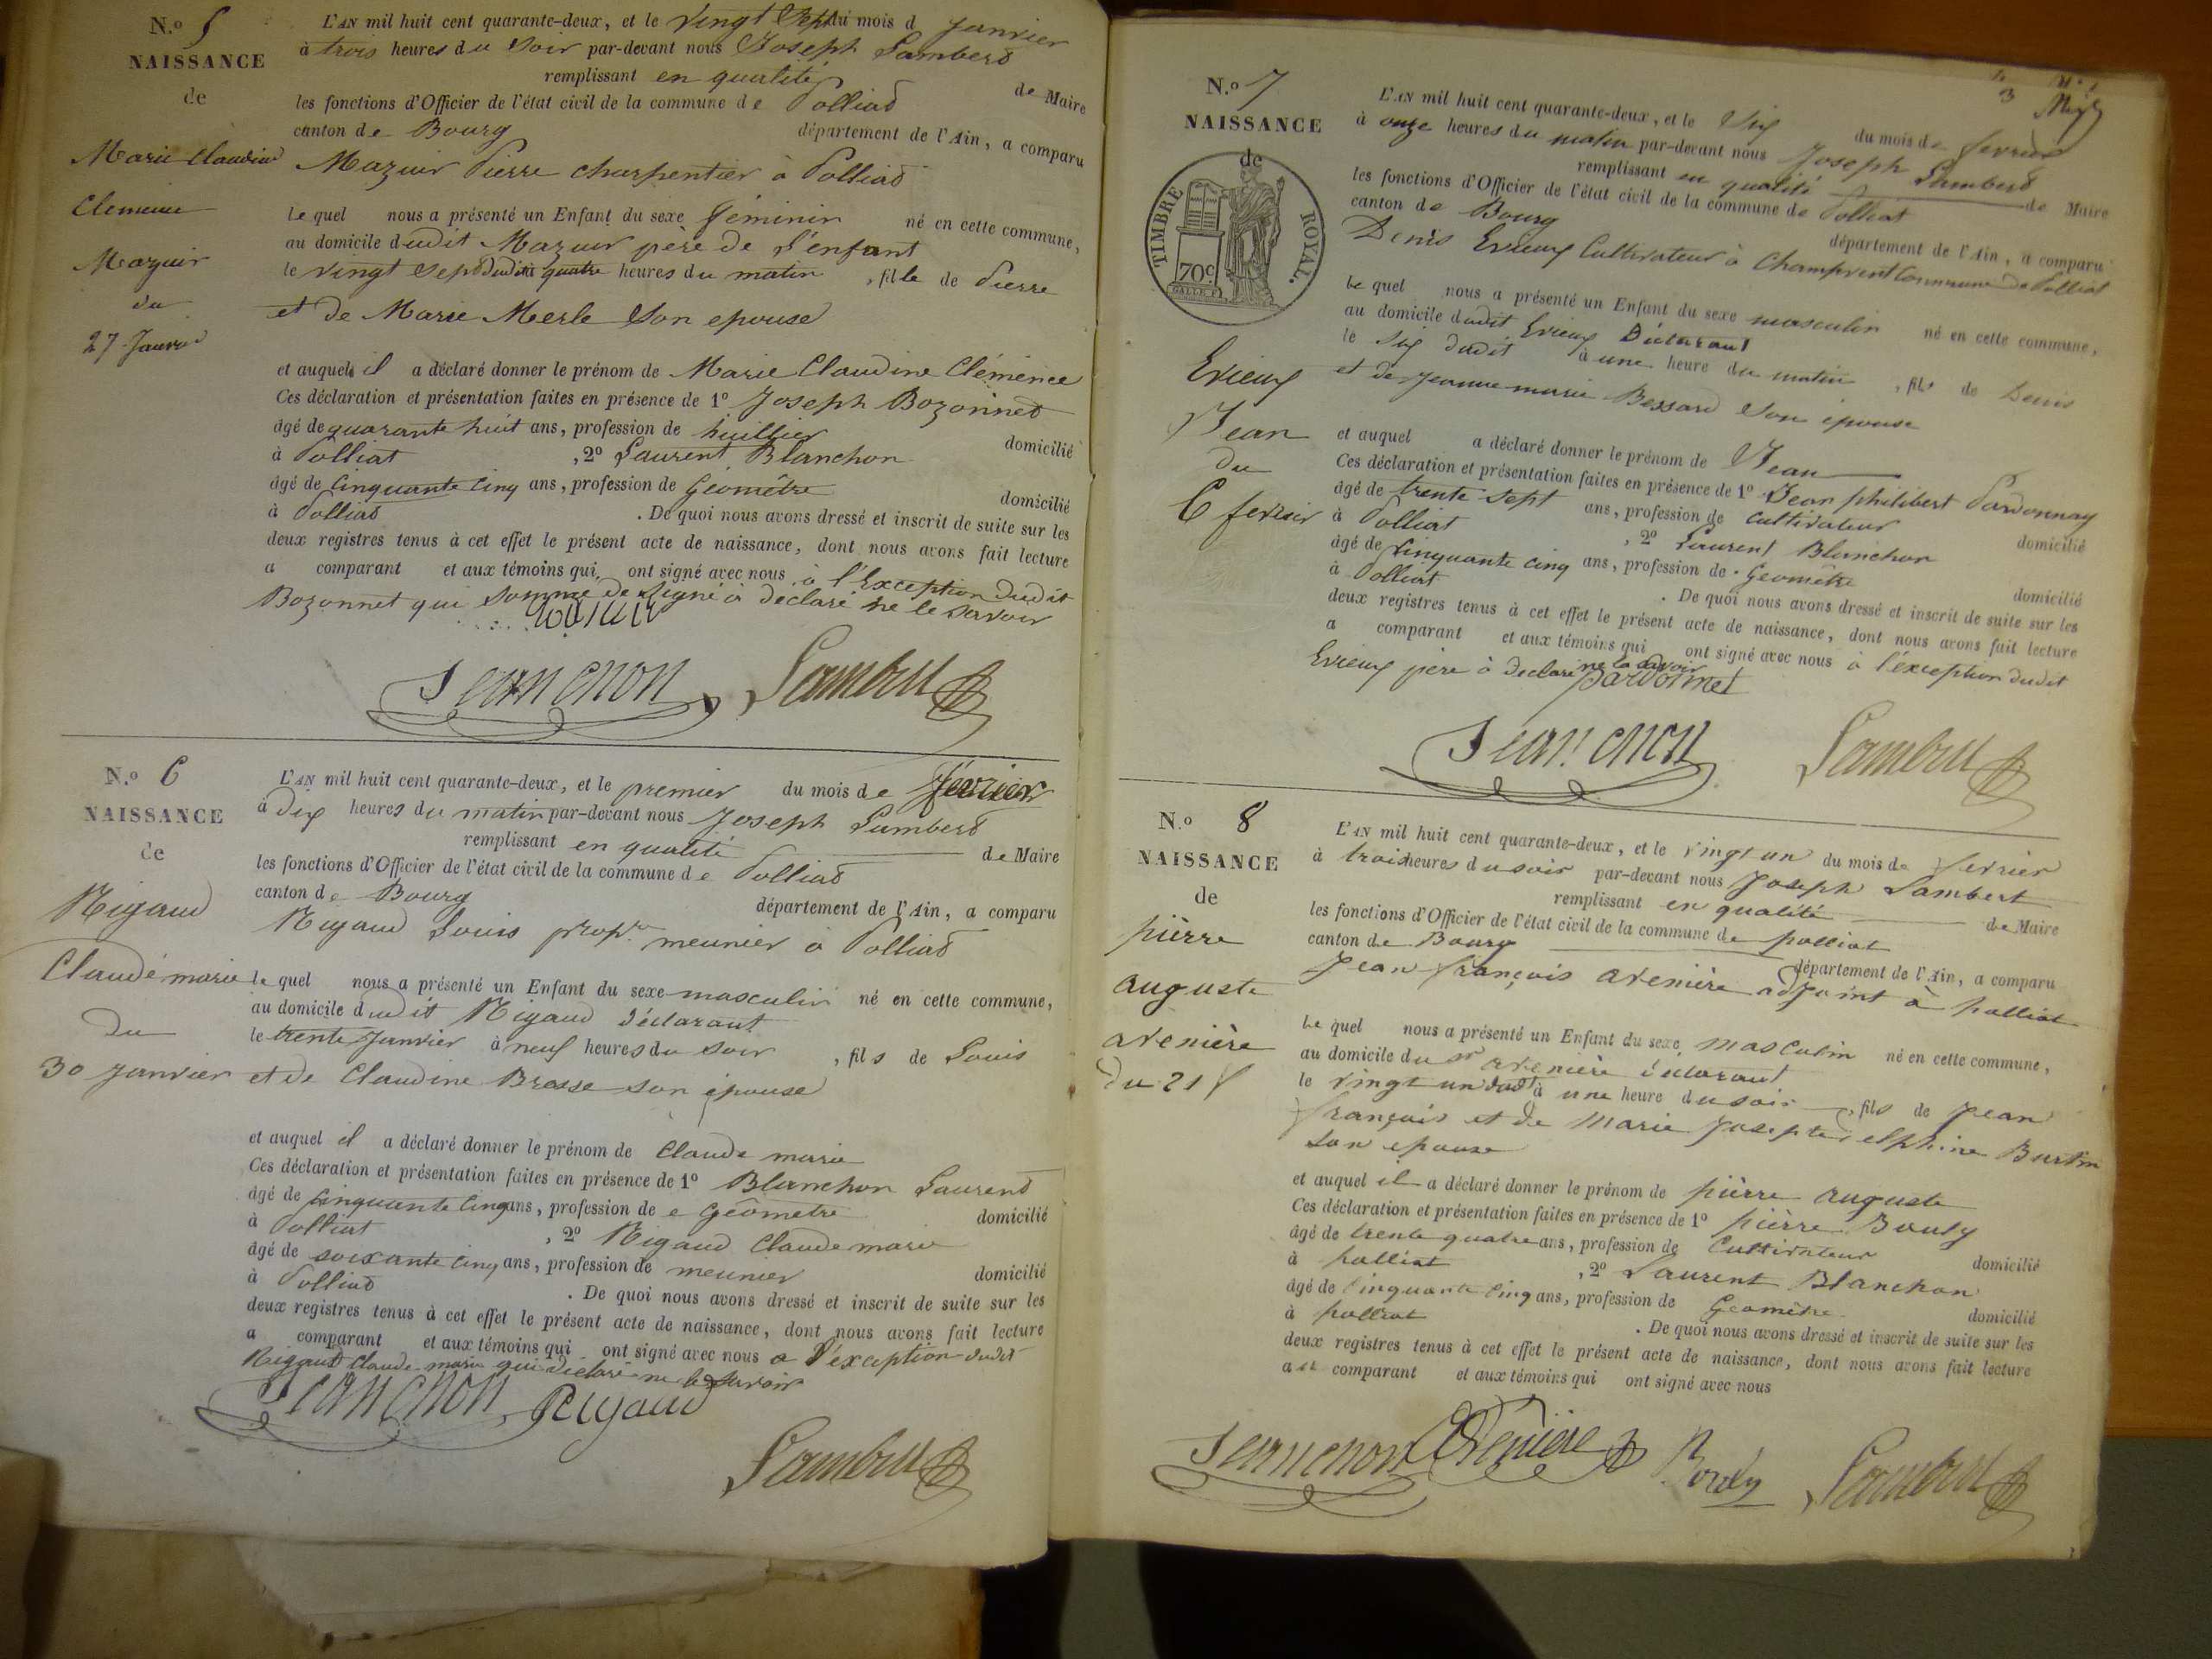 N.o 5
NAISSANCE
de
Marie Claudine
Clemence
Mazuir
du
27 Janvier
L'AN mil huit cent quarante-deux, et le vingt Sept du mois d Janvier
à trois heures du soir par-devant nous Joseph Lambert
remplissant en qualité de Maire
les fonctions d'Officier de l'état civil de la commune de Polliat
canton de Bourg département de l'Ain, a comparu
Mazuir Pierre charpentier à Polliat
lequel nous a présenté un Enfant du sexe féminin né en cette commune,
au domicile dudit Mazuir père de l'enfant
le vingt sept dudit à quatre heures du matin, fille de Pierre
et de Marie Merle son epouse
et auquel il a déclaré donner le prénom de Marie Claudine Clémence
Ces déclaration et présentation faites en présence de 1o Joseph Bozonnet
âgé de quarante huit ans, profession de huillier domicilié
à Polliat, 2o Laurent Blanchon
âgé de Cinquante Cinq ans, profession de Géomètre domicilié
à Polliat. De quoi nous avons dressé et inscrit de suite sur les
deux registres tenus à cet effet le présent acte de naissance, dont nous avons fait lecture
a comparant et aux témoins qui ont signé avec nous à l'Exception dudit
Bozonnet qui sommé de signé à déclaré ne le savoir
Lambert
N.o 6
NAISSANCE
de
Rigaud
Claude marie
du
30 Janvier
L'AN mil huit cent quarante-deux, et le premier du mois de février
à Dix heures du matin par-devant nous Joseph Lambert
remplissant en qualité de Maire
les fonctions d'Officier de l'état civil de la commune de Polliat
canton de Bourg département de l'Ain, a comparu
Rigaud Louis propre meunier à Polliat
lequel nous a présenté un Enfant du sexe masculin né en cette commune,
au domicile dudit Rigaud déclarant
le trente Janvier à neuf heures du soir, fils de Louis
et de Claudine Bresse son épouse
et auquel il a déclaré donner le prénom de Claude marie
Ces déclaration et présentation faites en présence de 1o Blanchon Laurent
âgé de Cinquante Cinq ans, profession de e Géomètre domicilié
à Polliat, 2o Rigaud Claude marie
âgé de soixante Cinq ans, profession de meunier domicilié
à Polliat. De quoi nous avons dressé et inscrit de suite sur les
deux registres tenus à cet effet le présent acte de naissance, dont nous avons fait lecture
a comparant et aux témoins qui ont signé avec nous a l'exception dudit
Rigaud Claude marie qui declaré ne le savoir
Rigaud
Lambert
N.o 7
NAISSANCE
de
TIMBRE ROYAL.
70c
Evieux
Jean
du
6 fevrier
L'AN mil huit cent quarante-deux, et le Six du mois de fevrier
à onze heures du matin par-devant nous Joseph Lambert
remplissant en qualité de Maire
les fonctions d'Officier de l'état civil de la commune de Polliat
canton de Bourg département de l'Ain, a comparu
Denis Evieux Cultivateur à Champvent Commune de Polliat
lequel nous a présenté un Enfant du sexe masculin né en cette commune,
au domicile dudit Evieux Déclarant
le Six dudit à une heure du matin, fils de Denis
et de Jeanne marie Bessard Son épouse
et auquel a déclaré donner le prénom de Jean
Ces déclaration et présentation faites en présence de 1o Jean philibert Pardonnay
âgé de trente Sept ans, profession de Cultivateur domicilié
à Polliat, 2o Laurent Blanchon
âgé de Cinquante Cinq ans, profession de Géomètre domicilié
à Polliat. De quoi nous avons dressé et inscrit de suite sur les
deux registres tenus à cet effet le présent acte de naissance, dont nous avons fait lecture
a comparant et aux témoins qui ont signé avec nous à l'éxception dudit
Evieux père à declaré ne la savoir
pardonnet
Lambert
N.o 8
NAISSANCE
de
pièrre
auguste
arenière
du 21 f
L'AN mil huit cent quarante-deux, et le vingt un du mois de fevrier
à trois heures du soir par-devant nous Joseph Lambert
remplissant en qualité de Maire
les fonctions d'Officier de l'état civil de la commune de polliat
canton de Bourg département de l'Ain, a comparu
Jean françois arenière adjoint à polliat
lequel nous a présenté un Enfant du sexe masculin né en cette commune,
au domicile du sr arenière déclarant
le vingt un dudt à une heure du soir, fils de Jean
françois et de Marie Josepte delphine Burtin
son epouse
et auquel il a déclaré donner le prénom de pièrre auguste
Ces déclaration et présentation faites en présence de 1o pièrre Bouly
âgé de trente quatre ans, profession de Cultivateur domicilié
à polliat, 2o Laurent Blanchon
âgé de Cinquante Cinq ans, profession de Géomètre domicilié
à polliat. De quoi nous avons dressé et inscrit de suite sur les
deux registres tenus à cet effet le présent acte de naissance, dont nous avons fait lecture
au comparant et aux témoins qui ont signé avec nous
arenière Bouly Lambert